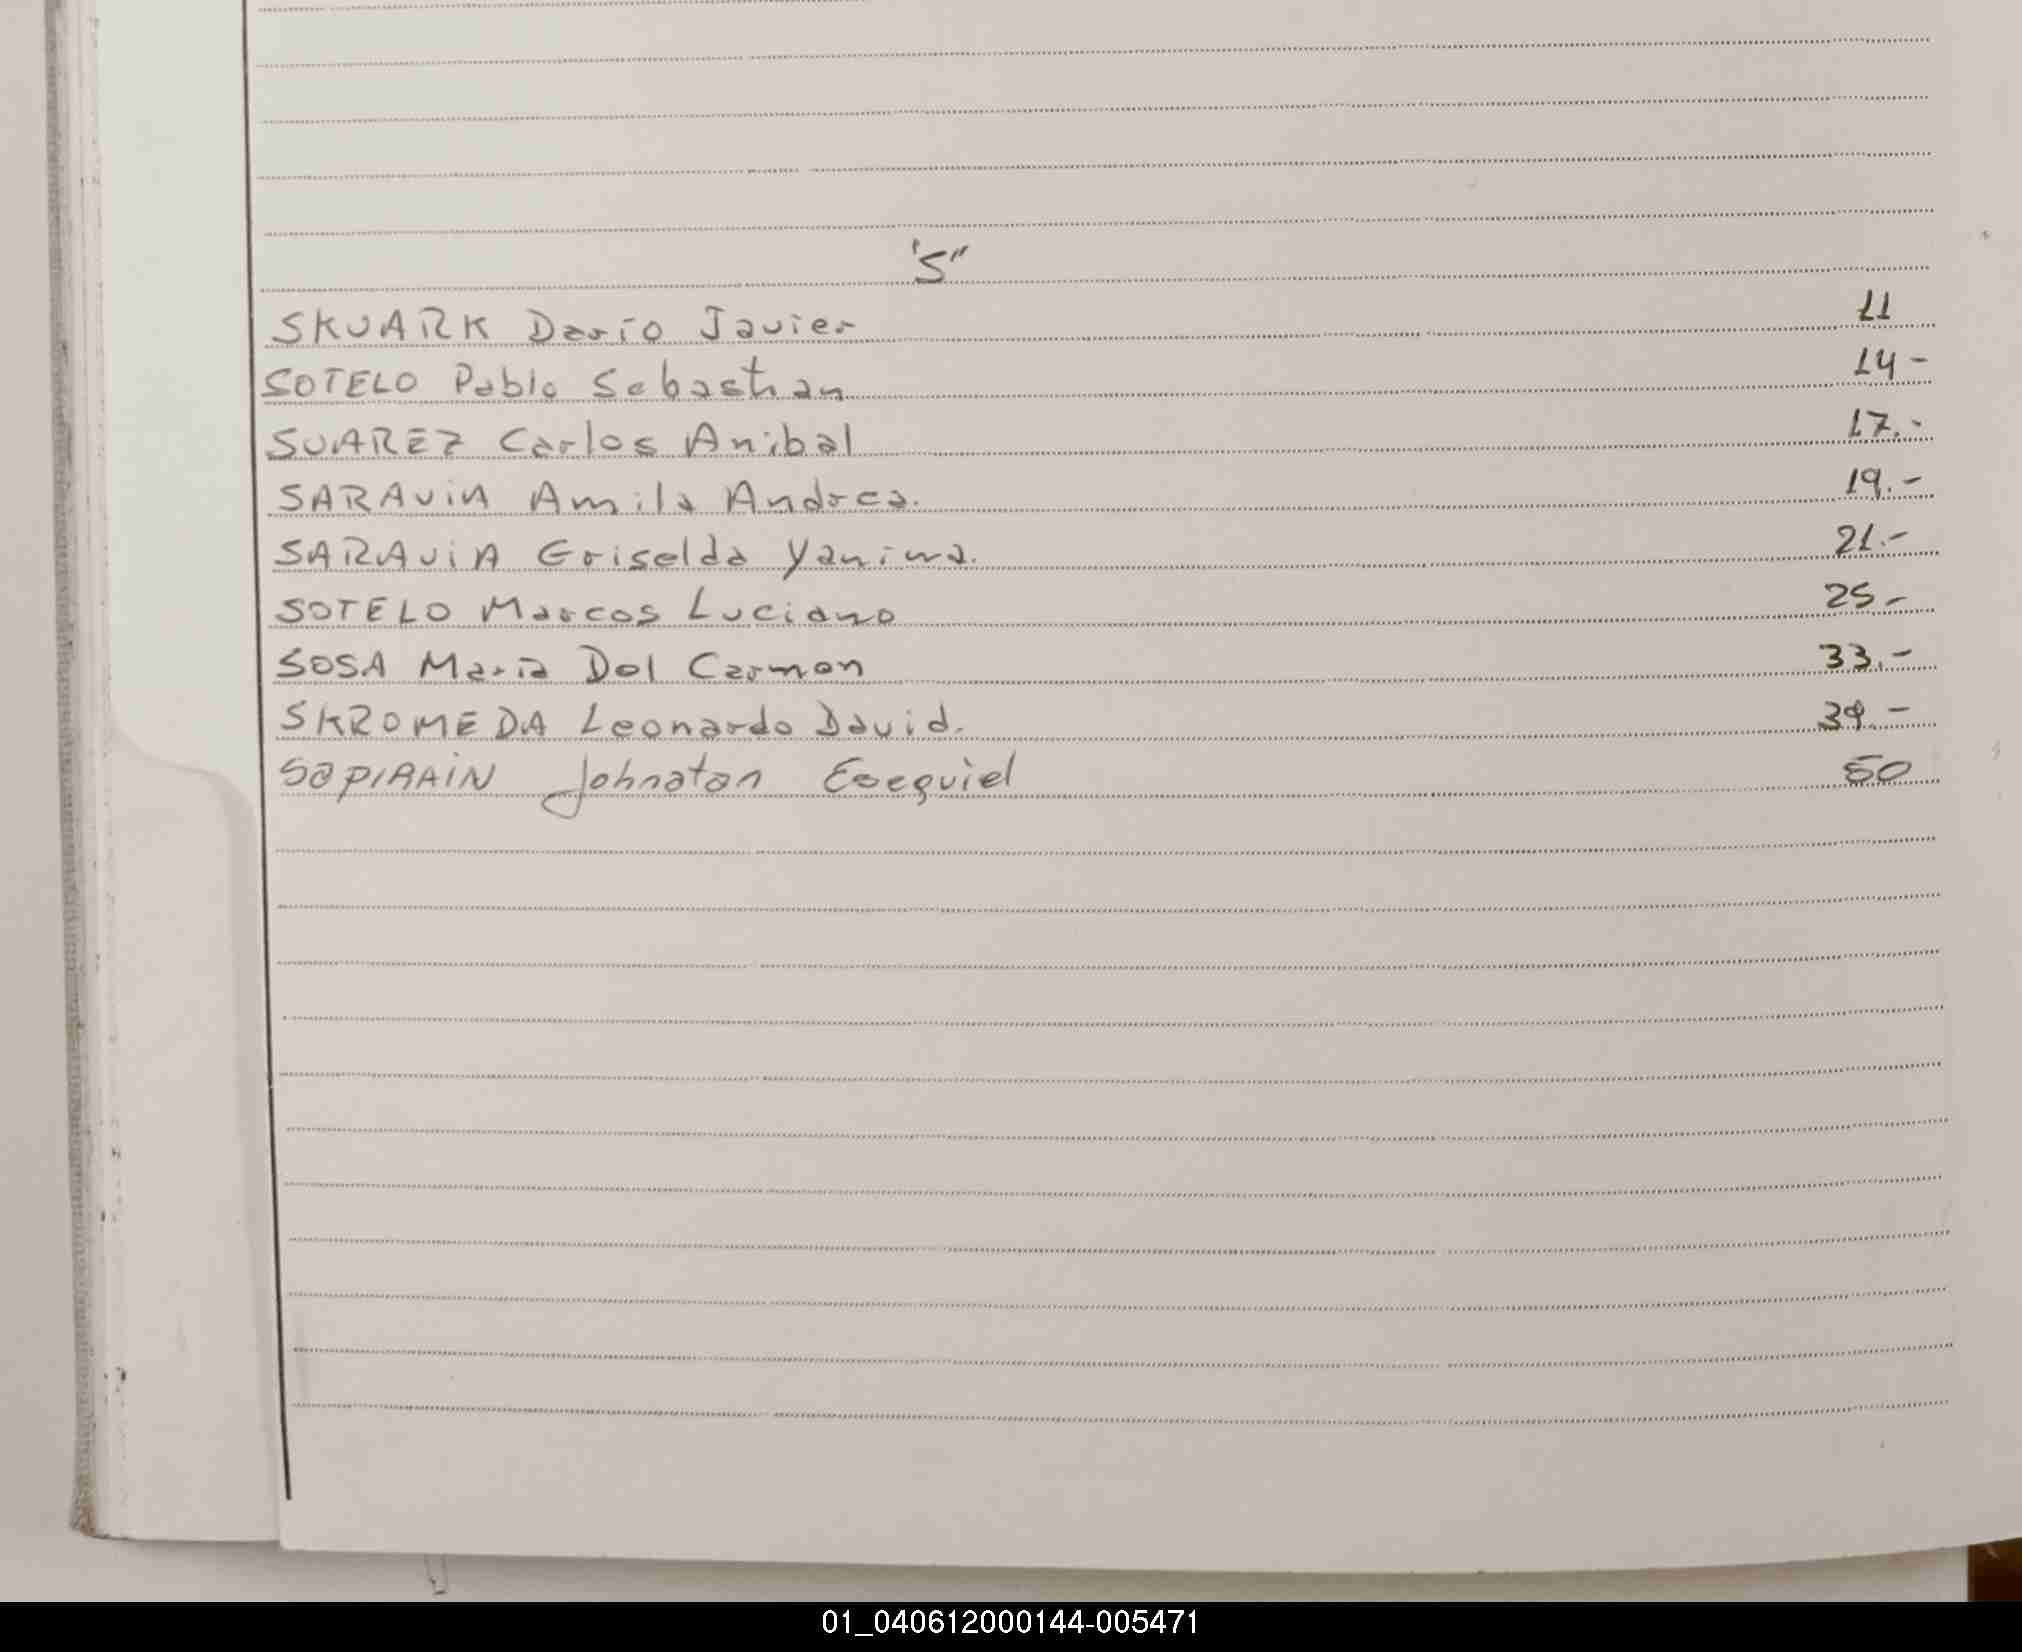 "S"
SKUARK Dario Javier 11
SOTELO Pablo Sebastian 14 -
SUAREZ Carlos Anibal 17.-
SARAVIA Amila Andrea. 19.-
SARAVIA Griselda Yanina. 21.-
SOTELO Marcos Luciano 25 -
SOSA Maria Del Carmen 33.-
SKROMEDA Leonardo David. 39.-
Johnatan Esequiel 50
01_040612000144-005471